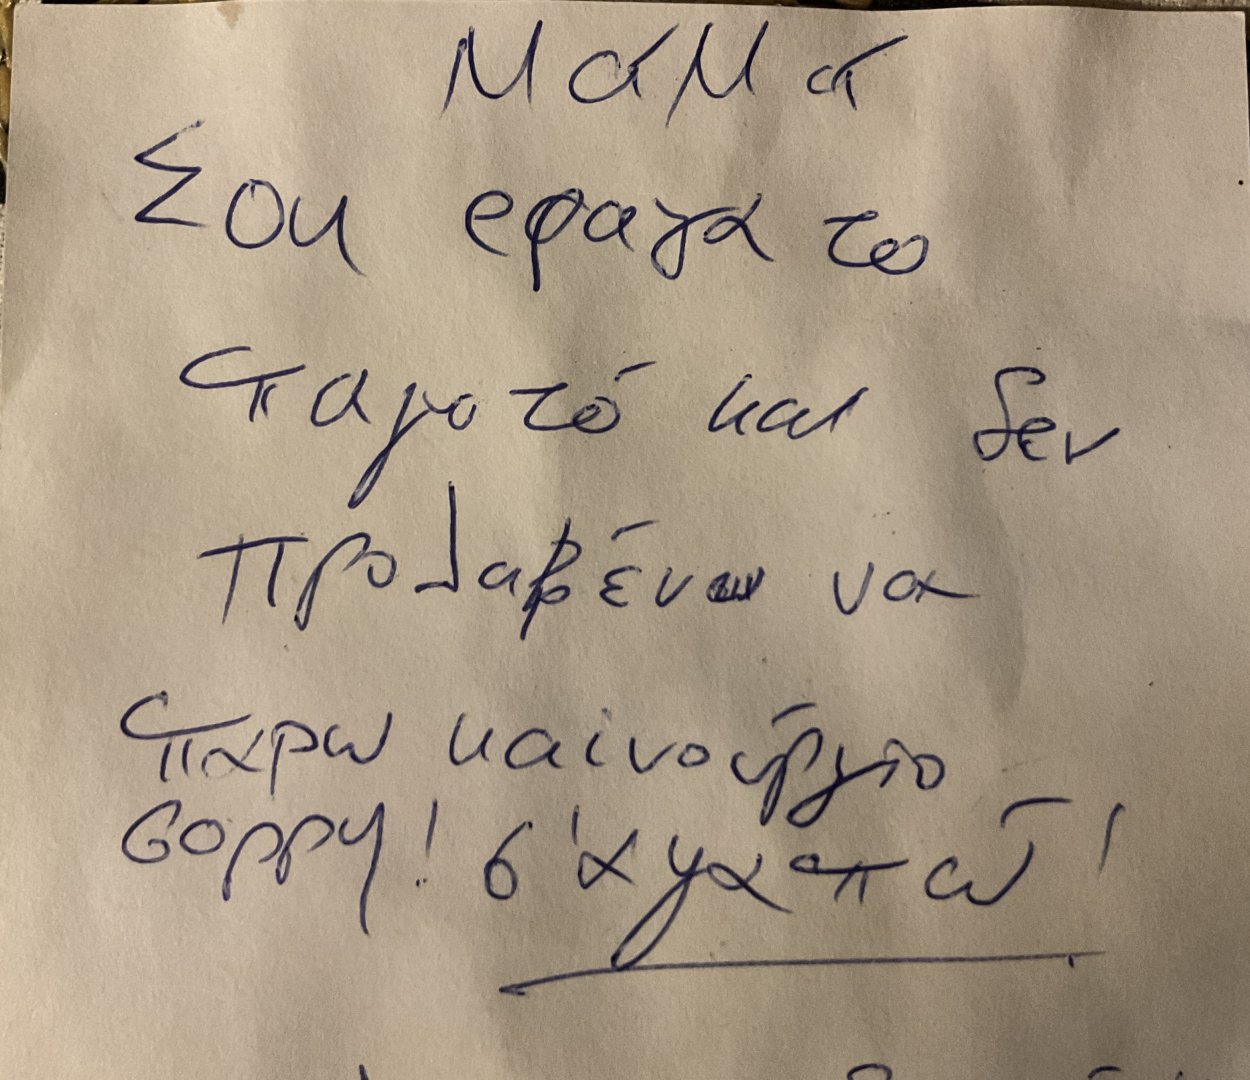 Μαμά
Σου εφαγα το
παγωτό και δεν
προλαβένω να
παρω καινούργιο
σορρη! σ'αγαπώ!